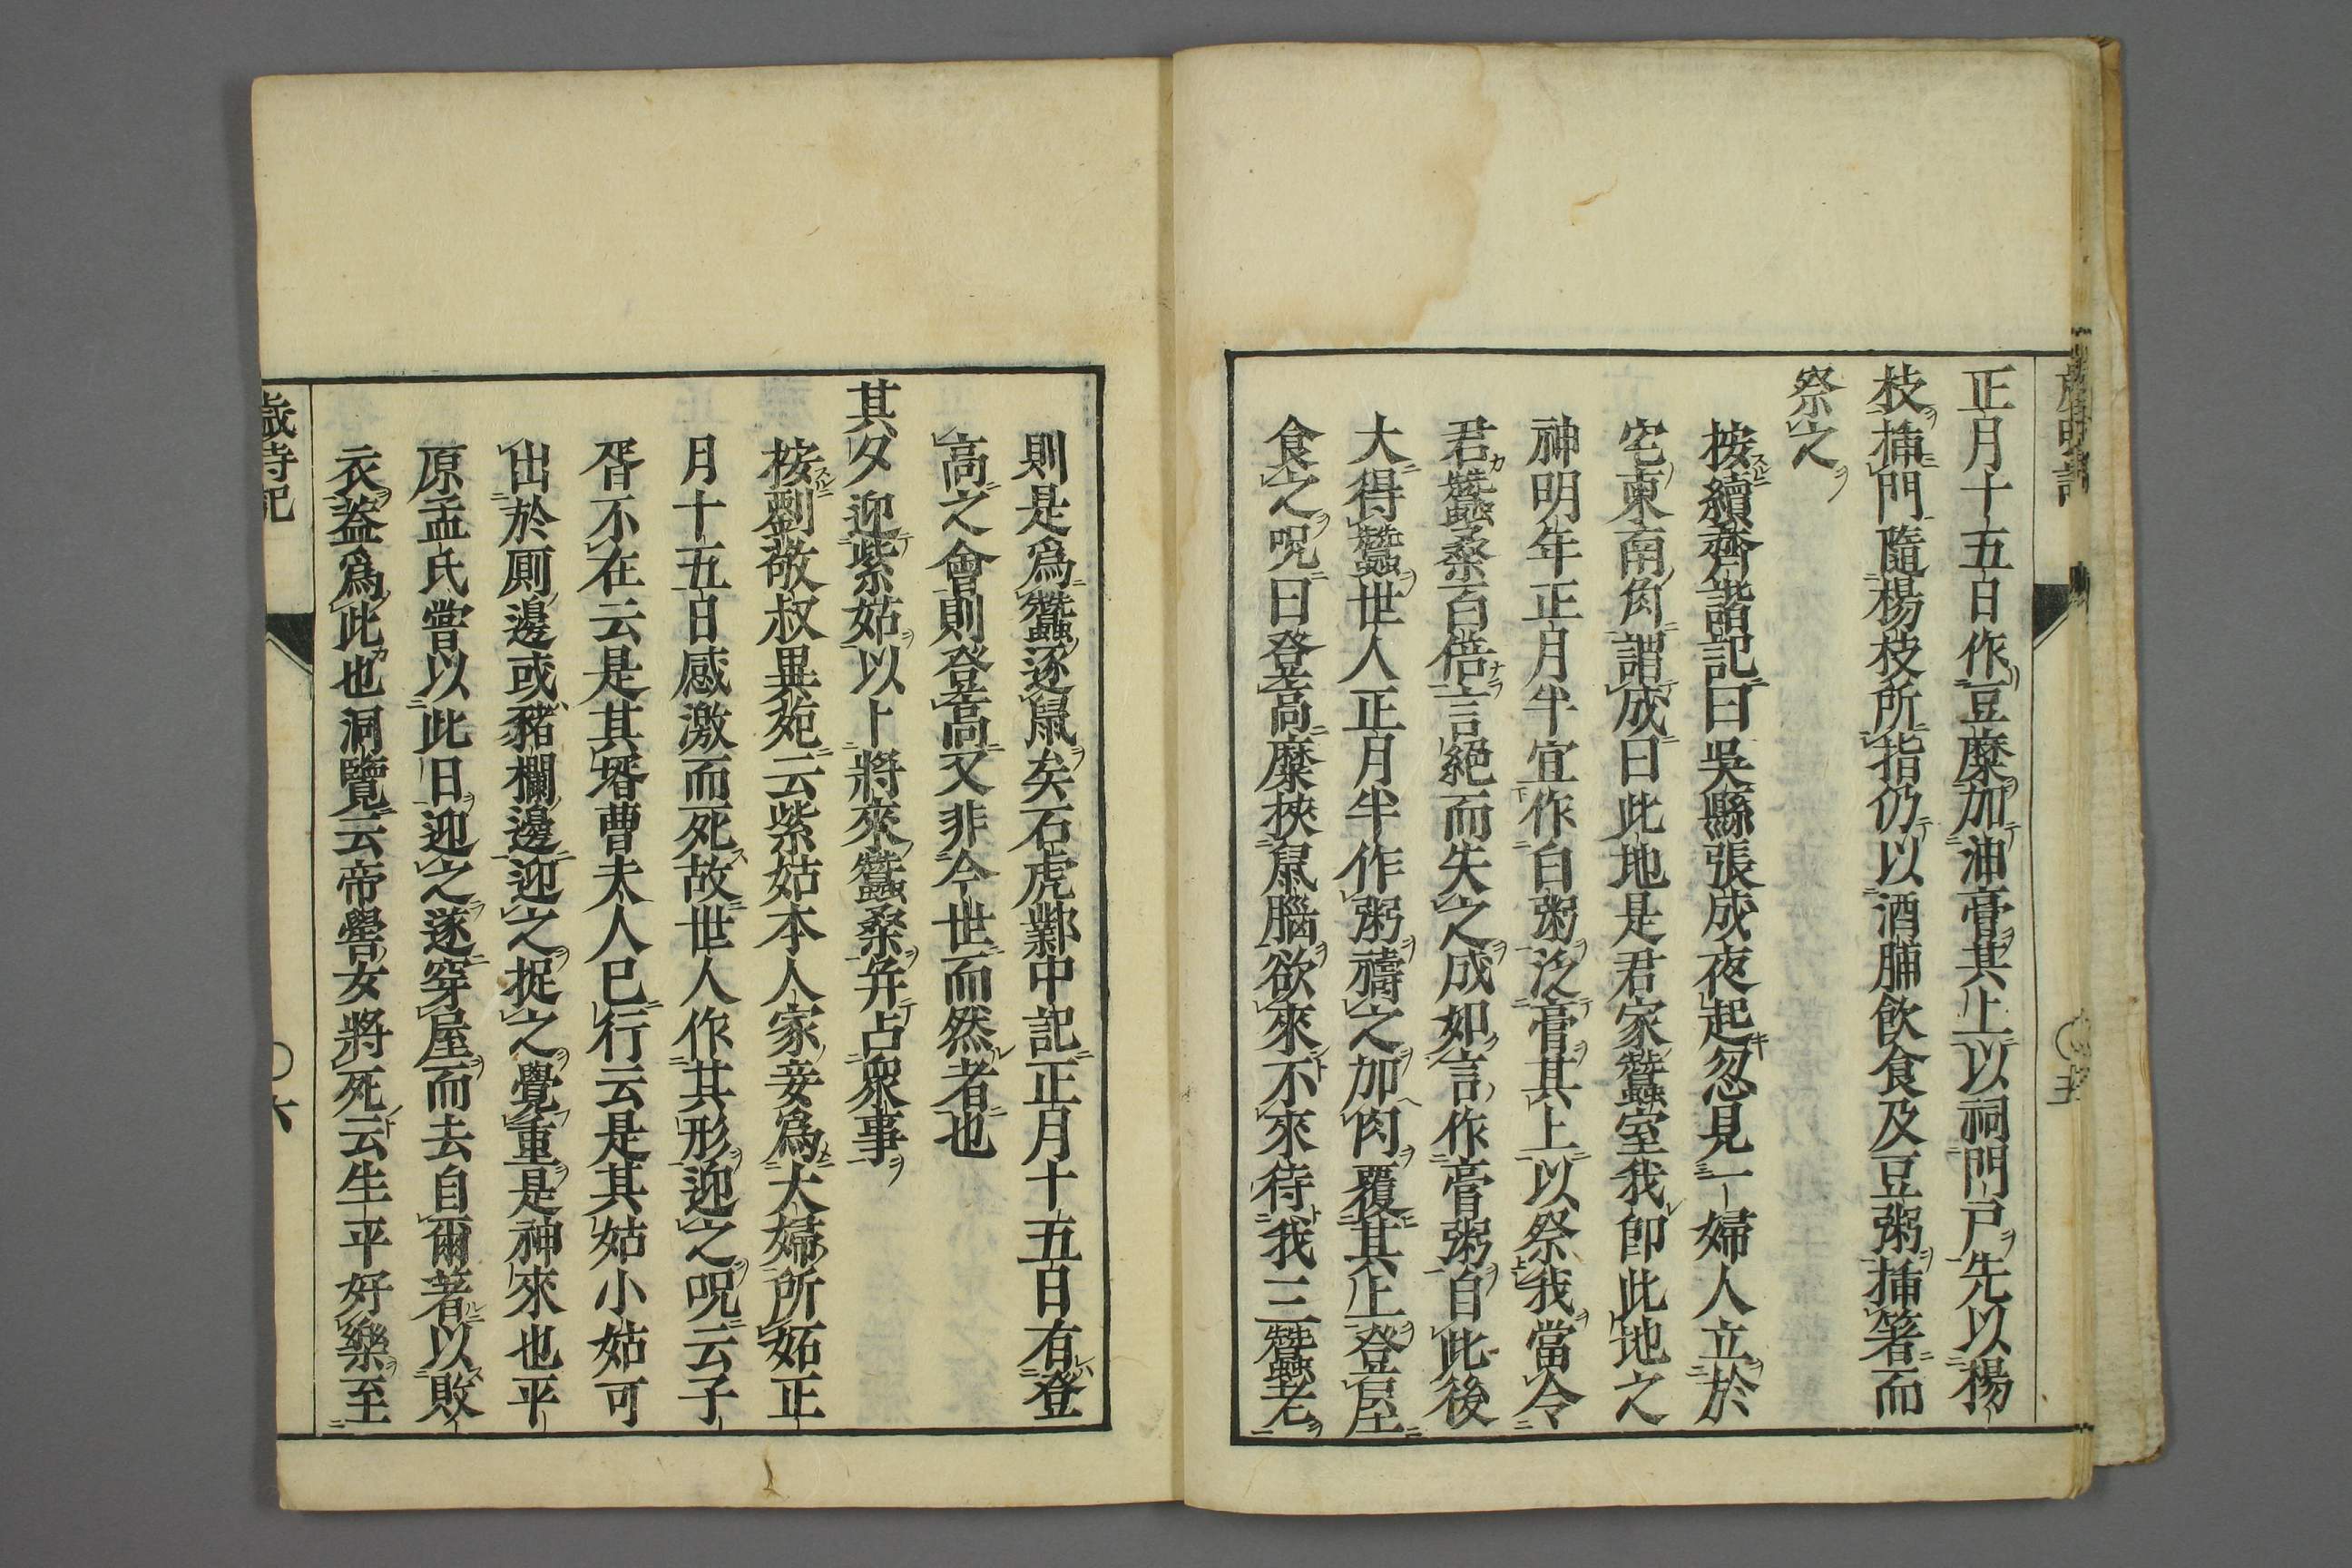 正月十五日作豆糜加油膏其上以祠門戸先以楊
枝揷門隨楊枝所指仍以酒脯飲食及豆粥揷箸而
祭之
按續齊諧記曰吳縣張成夜起忽見一婦人立於
宅東南角謂成曰此地是君家蠶室我卽此地之
神明年正月半宜作白粥泛膏其上以祭我當令
君蠶桑百倍言絕而失之成如言作膏粥自此後
大得蠶世人正月半作粥禱之加肉覆其上登屋
食之呪曰登高糜挾鼠腦欲來不來待我三蠶老
則是爲蠶逐鼠矣石虎鄴中記正月十五日有登
高之會則登高又非今世而然者也
其夕迎紫姑以卜將來蠶桑幷占衆事
按劉敬叔異苑云紫姑本人家妾爲大婦所妬正
月十五日感激而死故世人作其形迎之呪云子
胥不在云是其壻曹夫人已行云是其姑小姑可
出於厠邊或豬欄邊迎之捉之覺重是神來也平
原孟氏嘗以此日迎之遂穿屋而去自爾著以敗
衣蓋爲此也洞覽云帝嚳女將死云生平好樂至
歲時記
〇六